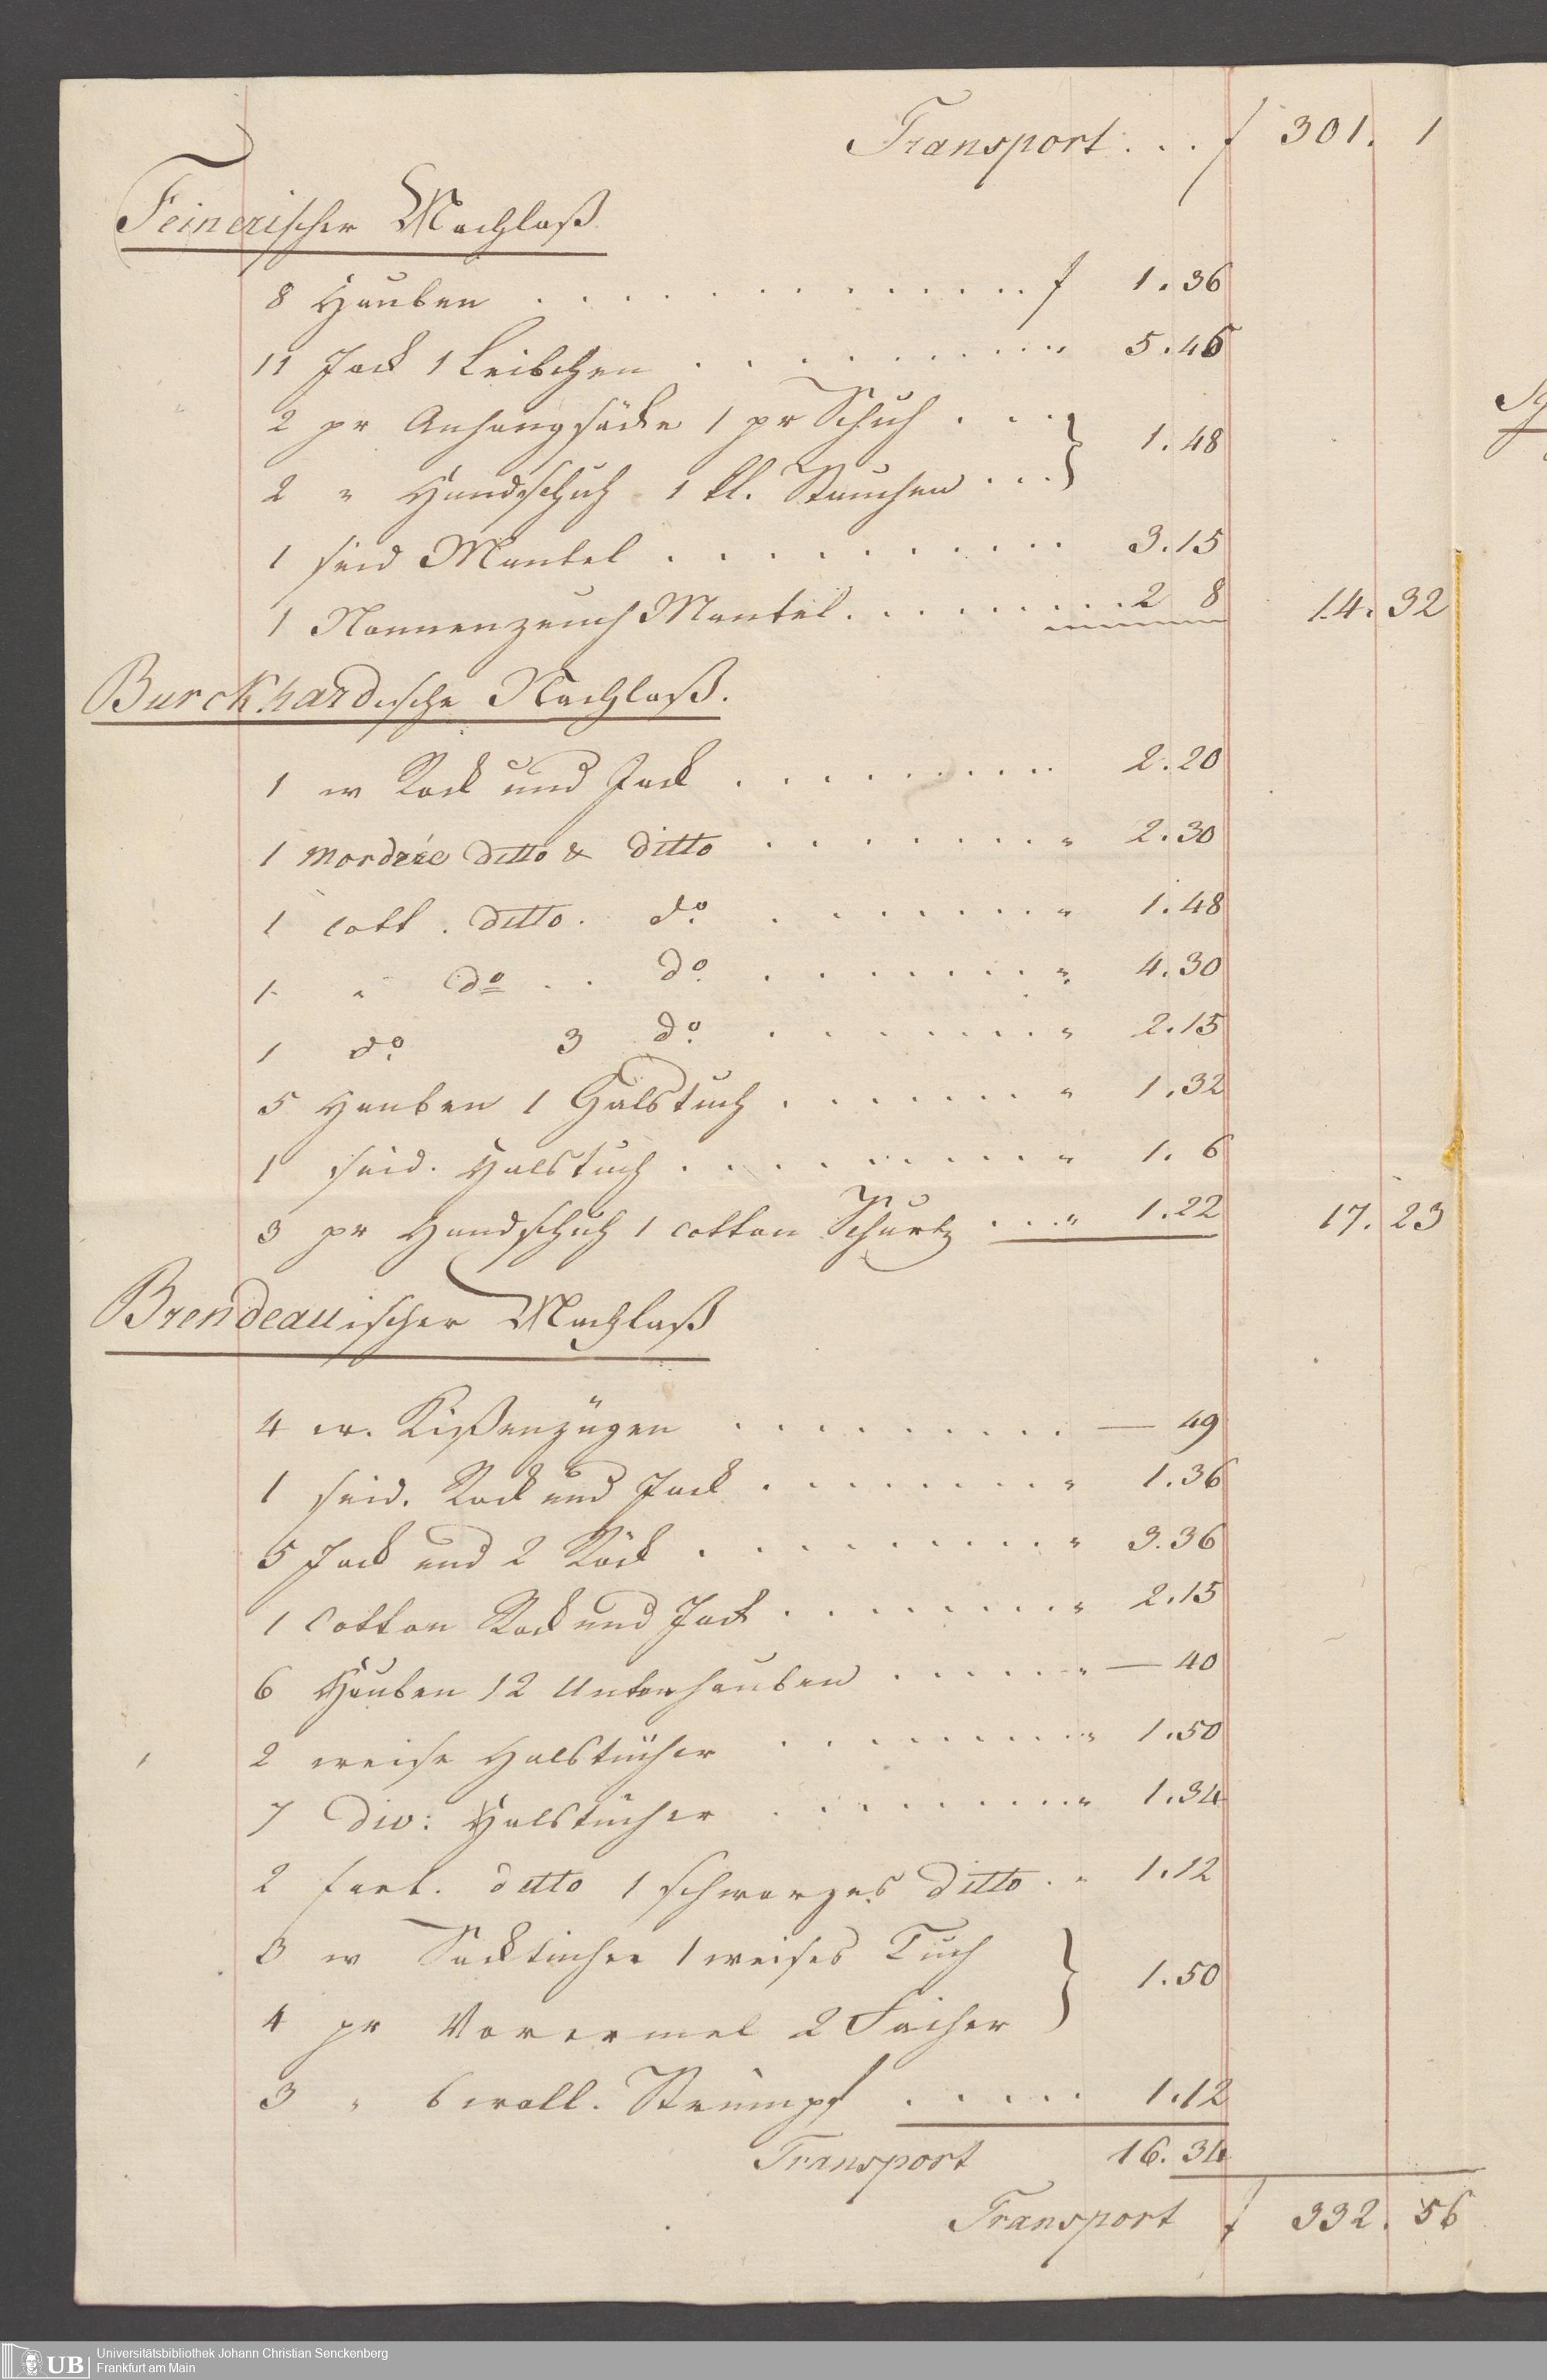 Transport . . . f 301. 1
Feinerischer Nachlaß
8 Hauben . . . . . . . . . . . . f 1.36
11 Jack 1 Leibchen . . . . . . . . . " 5.45
2 pr Anhangsäcke 1 pr Schuh . . .
2 " Handschuh 1 kl. Stauchen . . . } 1.48
1 seid Mantel . . . . . . . . . . 3.15
1 Nonnenzeuch Mantel . . . . . . . . 2 8 14. 32
Burckhardische Nachlaß.
1 w Rock und Jack . . . . . . . . . 2.20
1 mordrée ditto & ditto . . . . . . . " 2.30
1 cott. ditto. do . . . . . . . " 1.48
1 " do . . do . . . . . . . " 4.30
1 do 3 do . . . . . . . " 2.15
5 Hauben 1 Halstuch . . . . . . . " 1.32
1 seid. Halstuch . . . . . . . . . " 1. 6
3 pr Handschuh 1 cotton Schurtz . . . " 1.22 17. 23
Brendeauischer Nachlaß
4 w. Kißenzügen . . . . . . . . . — 49
1 seid. Rock und Jack . . . . . . . " 1.36
5 Jack und 2 Röck . . . . . . . . . " 3.36
1 Cotton Rock und Jack . . . . . . . " 2.15
6 Hauben 12 Unterhauben . . . . . " — 40
2 weise Halstücher . . . . . . . . " 1.50
7 div: Halstücher . . . . . . . . . " 1.34
2 farb. ditto 1 schwarzes ditto . " 1.12
3 w Sacktücher 1 weises Tuch
4 pr Vorermel 2 Fächer } 1.50
3 " bwoll. Strümpf . . . . . 1.12
Transport 16. 34
Transport f 332. 56
Universitätsbibliothek Johann Christian Senckenberg
Frankfurt am Main
UB